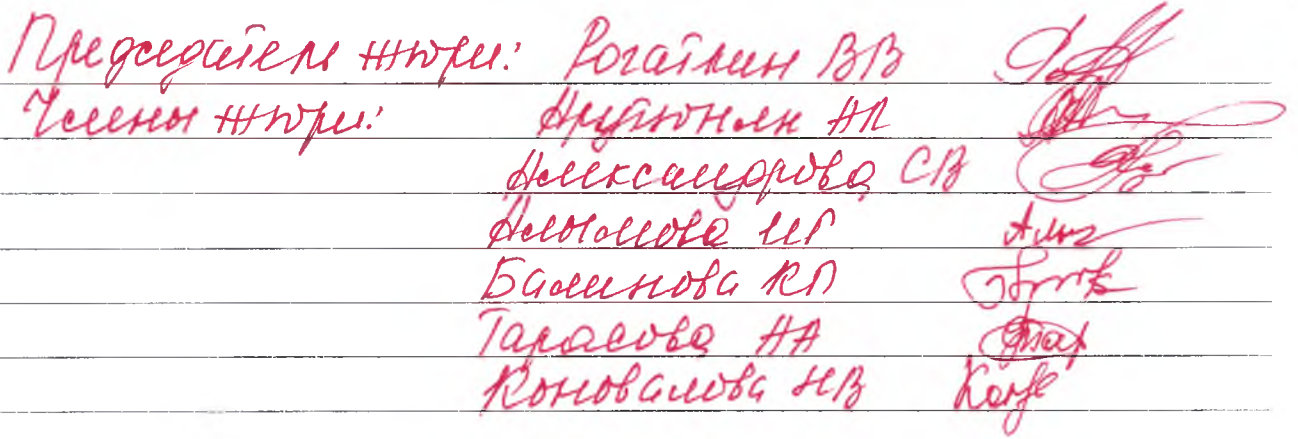 Председатель жюри: Рогаткин ВВ
Члены жюри: Арутюнян АП
Александрова СВ
Алымова ИГ
Балинова КП
Тарасова АА
Коновалова НВ